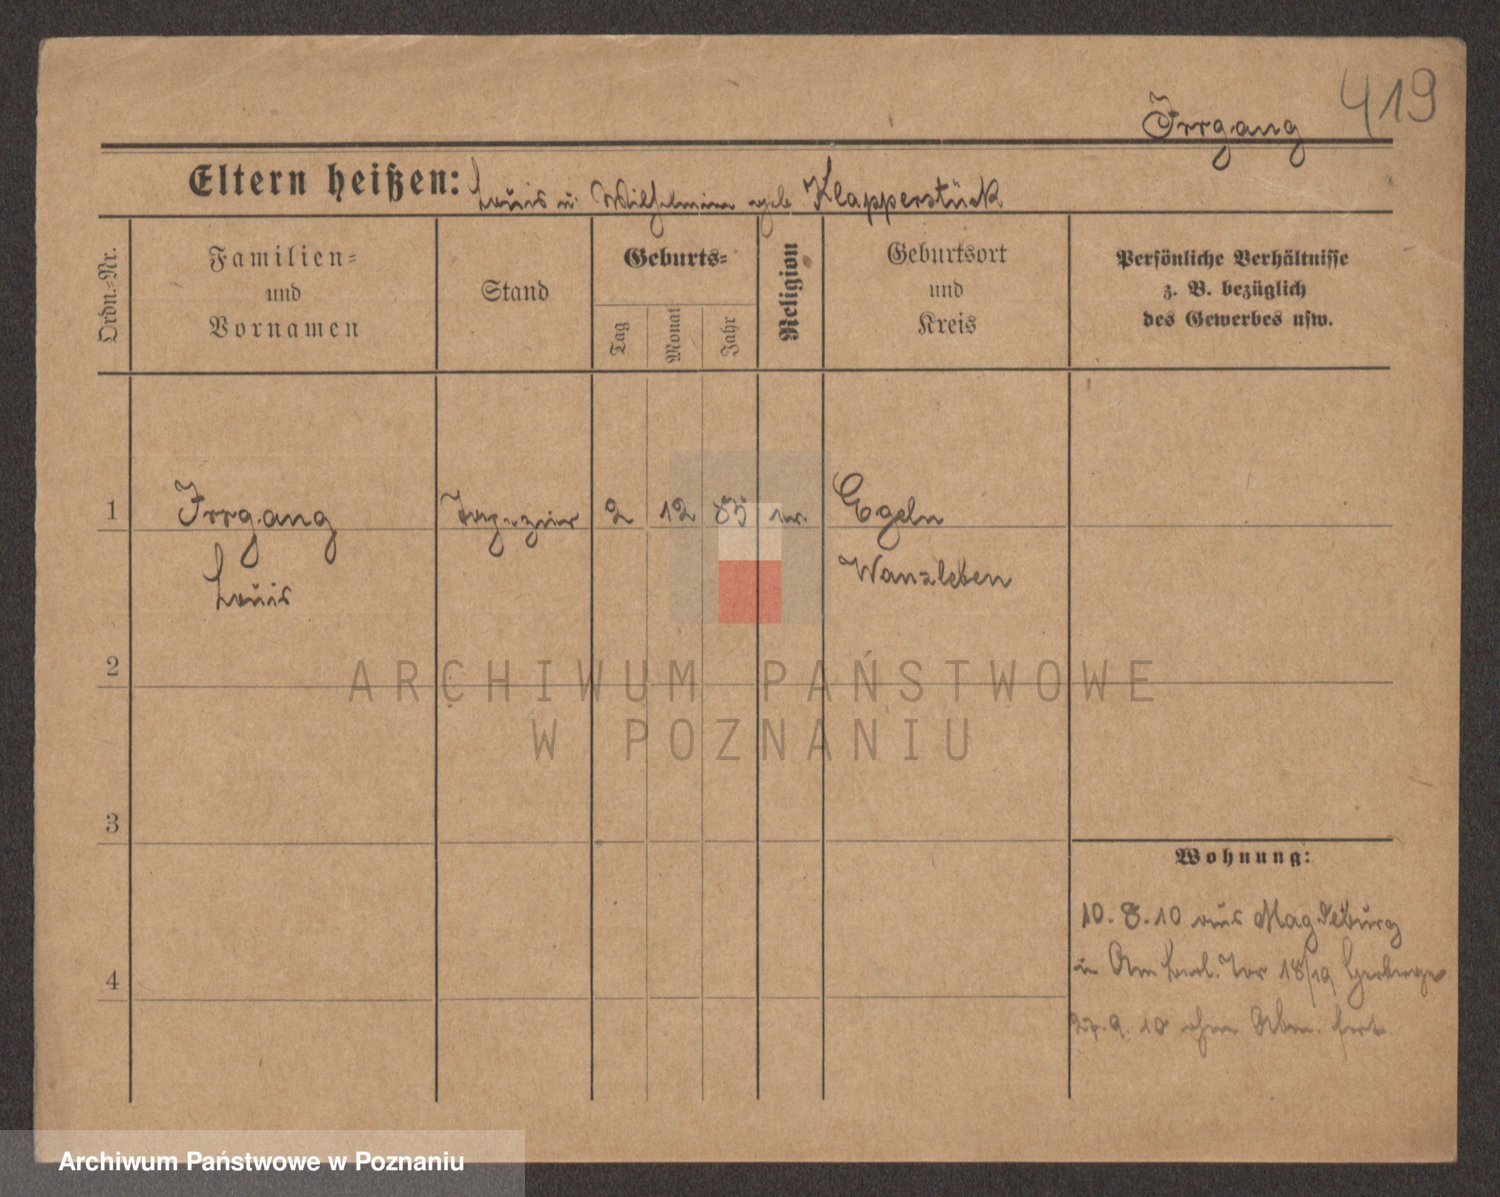 419
Irrgang
Eltern heißen: Louis u. Wilhelmine geb Klapperstück
Ordn.-Nr.
Familien-
und
Vornamen
Stand
Geburts-
Tag
Monat
Jahr
Religion
Geburtsort
und
Kreis
Persönliche Verhältnisse
z. B. bezüglich
des Gewerbes usw.
1 Irrgang Tapezier 2 12 85 Egeln
Louis Wanzleben
2
3
4
Wohnung:
10.8.10 aus Magdeburg
in Am Berl. Tor 18/19
27.9.10 ohne Abm. fort
ARCHIWUM PAŃSTWOWE
W POZNANIU
Archiwum Państwowe w Poznaniu